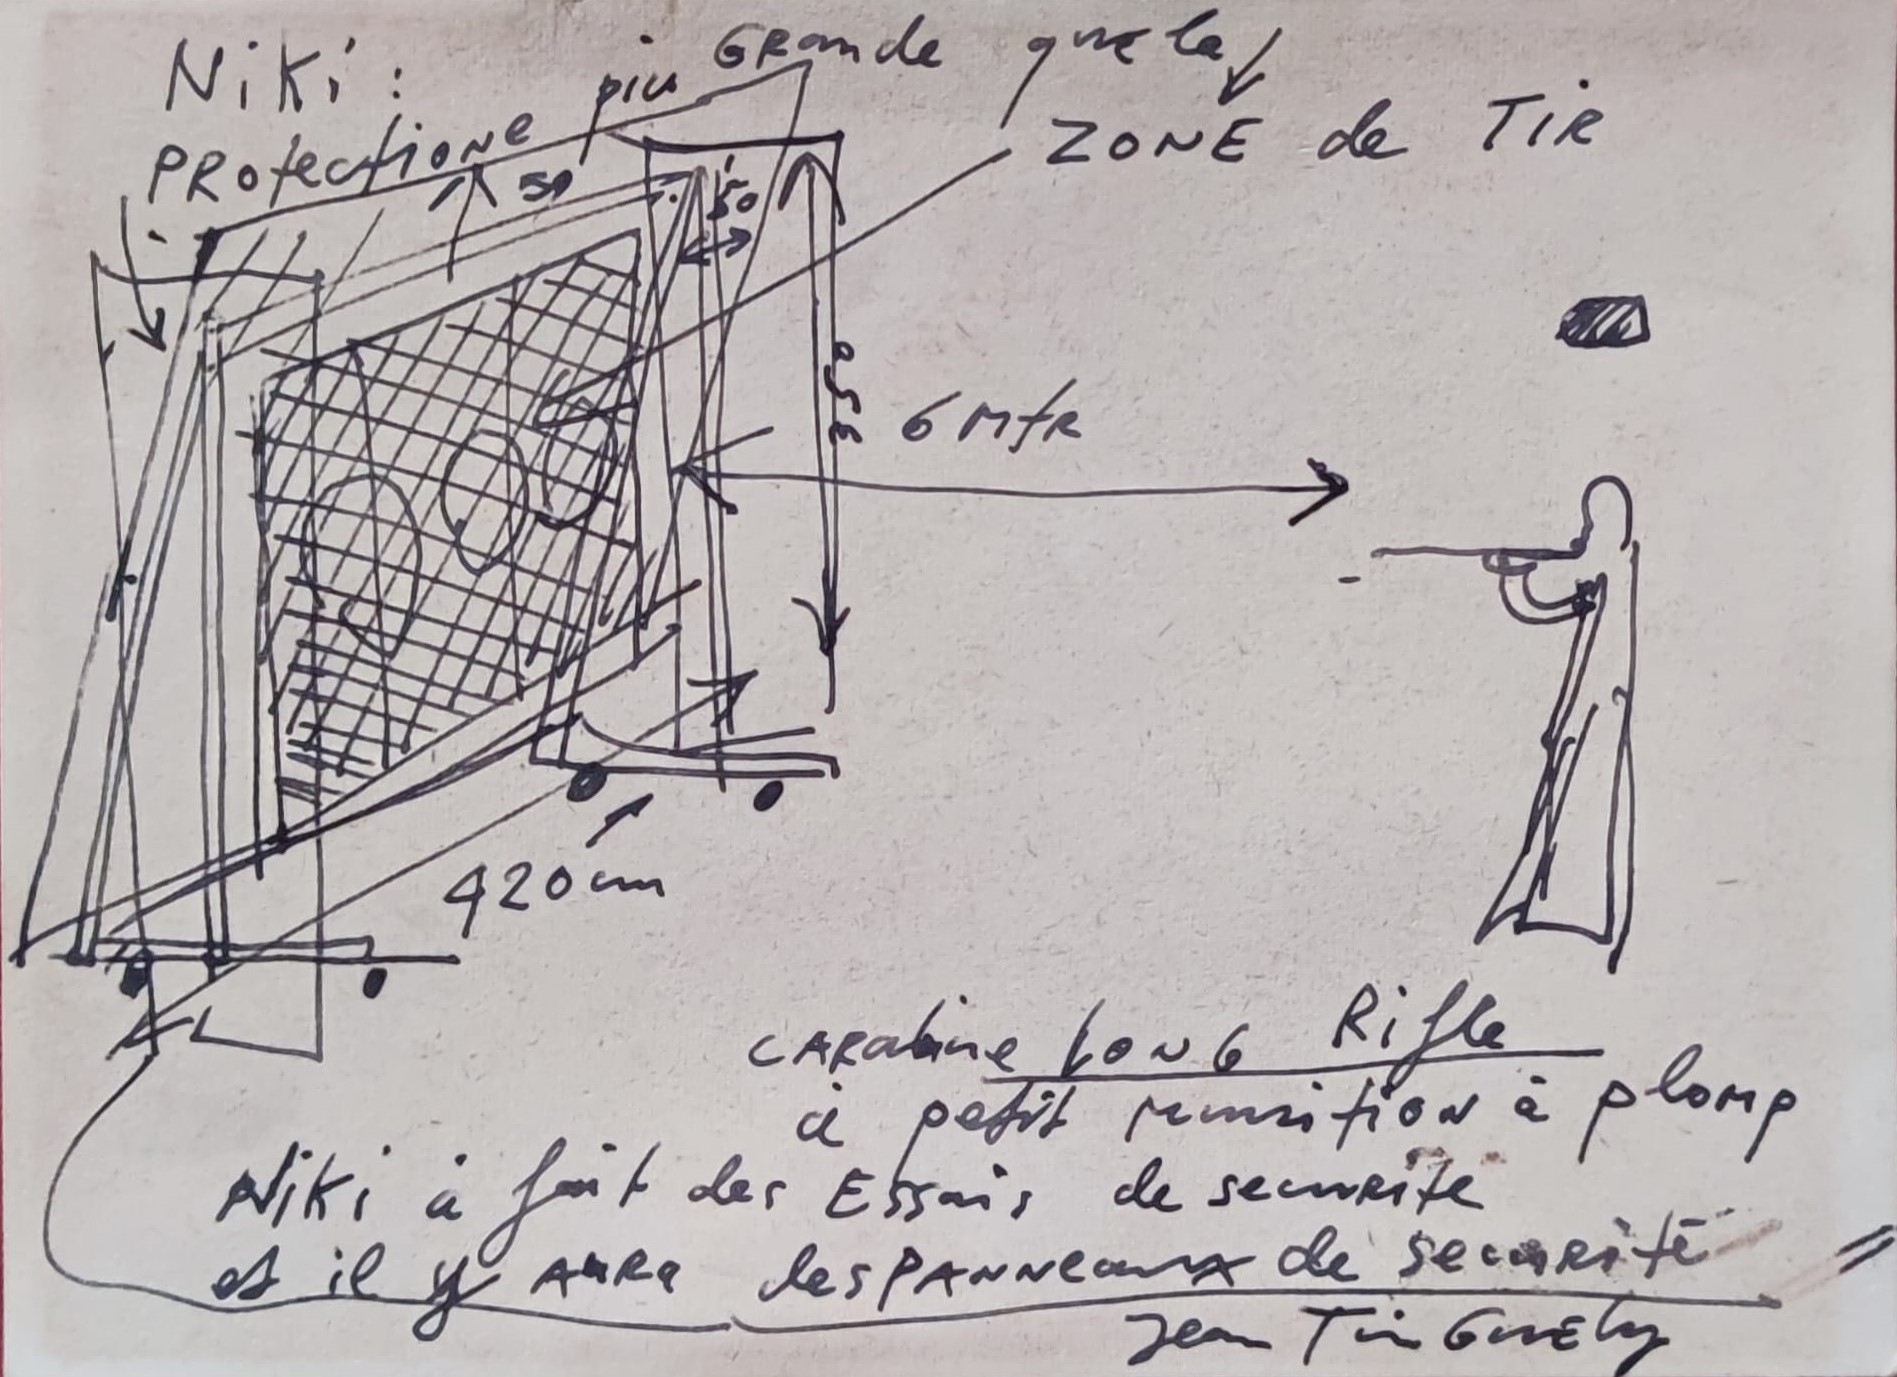 Niki :
PROtectione più GRande que la
ZONE de TiR
50
50
350
6 MtR
420 cm
CARabine LONG Rifle
à petit munition à plomp
Niki à fait des Essais de securite
et il y AURA des PANNEaux de securité
Jean TinGuely